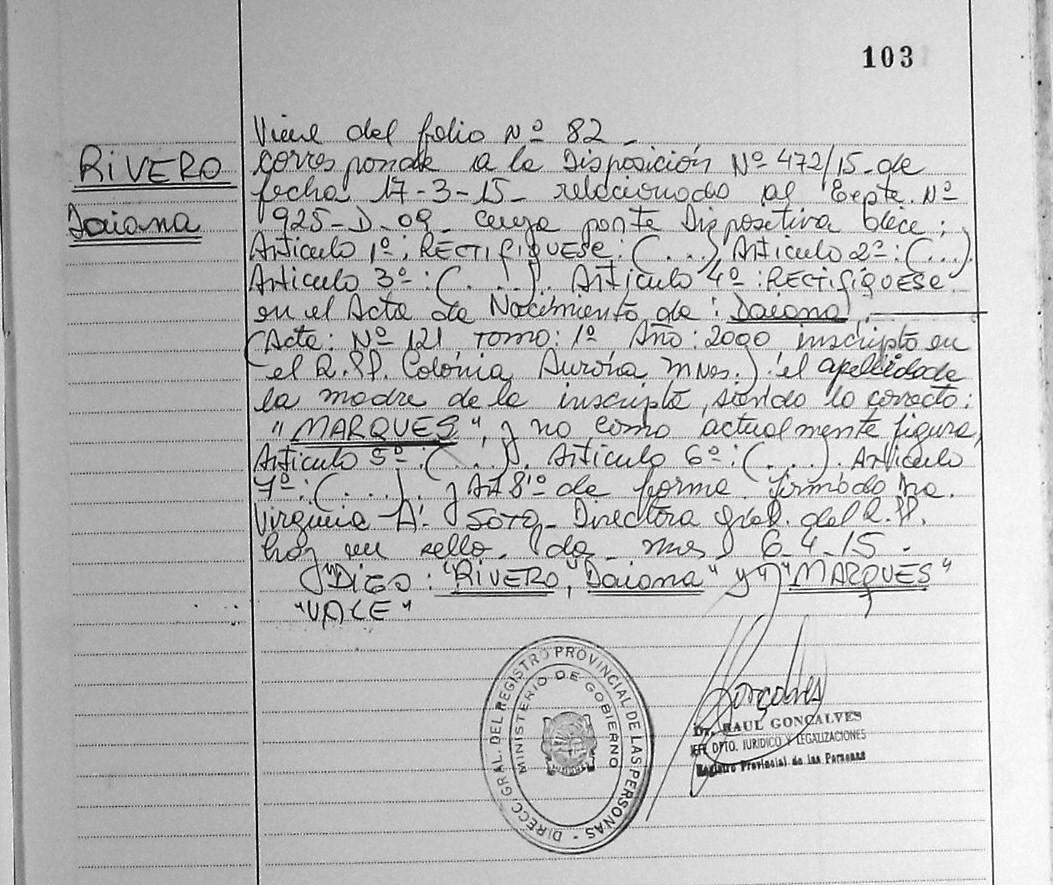 103
RIVERO
Daiana
Viene del folio Nº 82 -
corresponde a la Disposición Nº 472/15 de
fecha 17-3-15- relacionado al Expte. Nº
925-D-09- cuya parte Dispositiva dice:
Articulo 1º: RECTIFIQUESE: (...) Articulo 2º: (...)
Articulo 3º: (...). Articulo 4º: RECTIFIQUESE
en el Acta de Nacimiento de: Daiana
(Acta: Nº 121 Tomo: 1º Año: 2000 inscripto en
el R.P.P. Colonia Aurora Mnes.) el apellido de
la madre de la inscripta, siendo lo correcto:
"MARQUES", y no como actualmente figura,
Articulo 5º: (...), Articulo 6º: (...). Articulo
7º: (...). y Art 8º de forma firmado
Virginia A. SOTO - Directora Gral. del R.P.P.
hay un sello. 6-4-15.
"DIGO: "RIVERO, Daiana" y "MARQUES"
"VALE"
DIRECC. GRAL. DEL REGISTRO PROVINCIAL DE LAS PERSONAS -
MINISTERIO DE GOBIERNO
Dr. RAUL GONÇALVES
JEFE DPTO. JURIDICO Y LEGALIZACIONES
Registro Provincial de las Personas